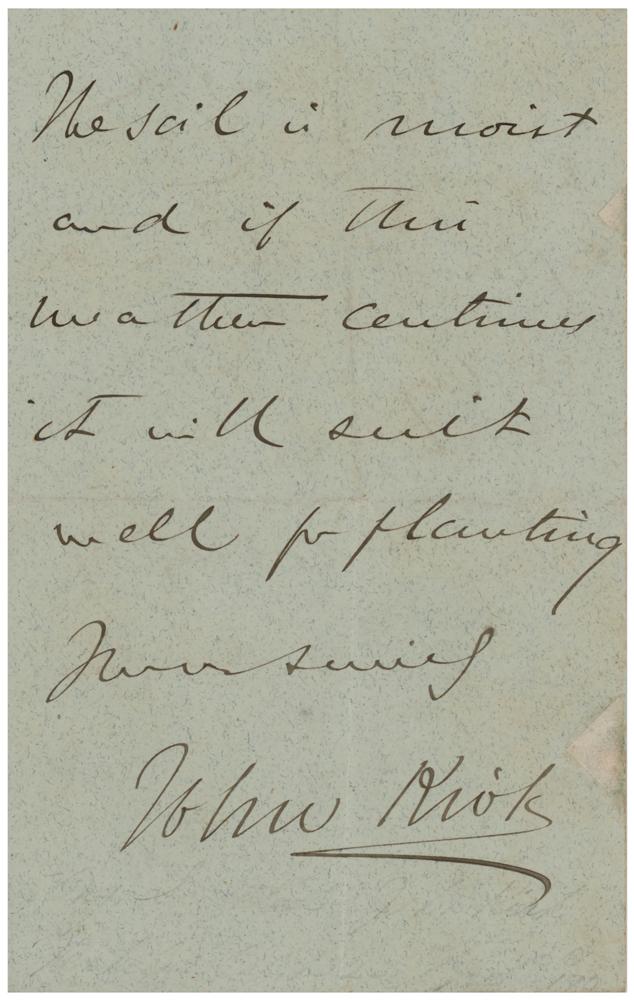 The soil is moist
and if this
weather continues
it will suit
well for planting
Yours sincerely
John Kirk